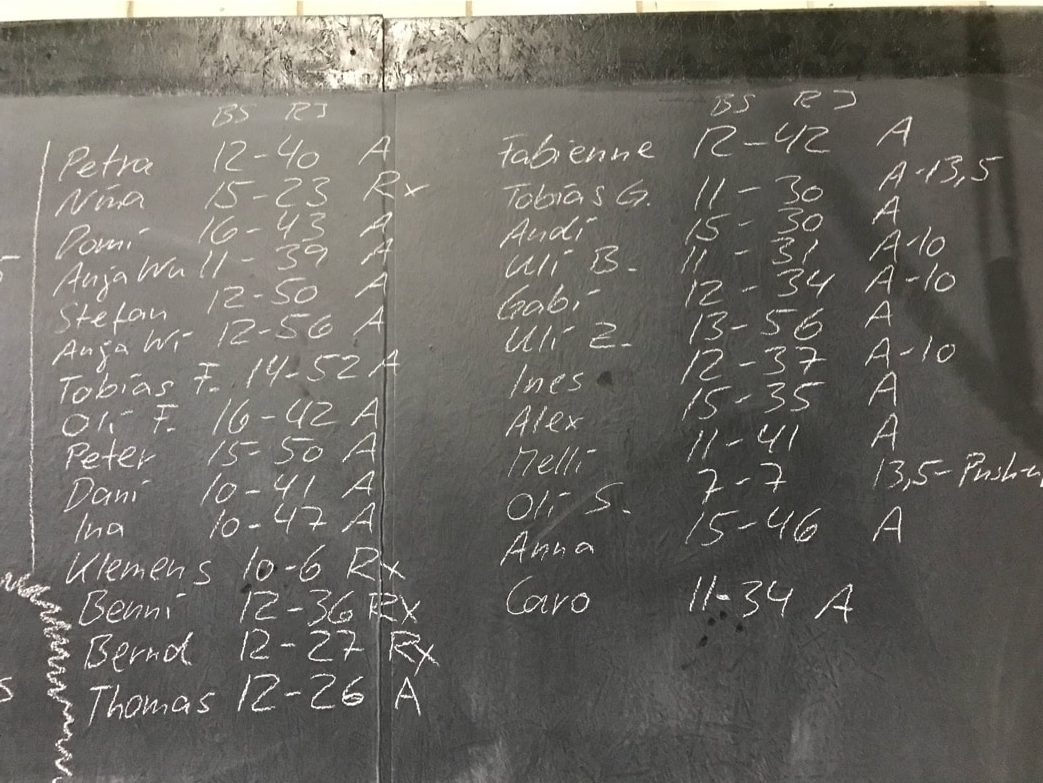 BS RJ
Petra 12-40 A
Nina 15-23 Rx
Domi 16-43 A
Anja Wu 11-39 A
Stefan 12-50 A
Anja Wi 12-56 A
Tobias F. 14-52 A
Oli F. 16-42 A
Peter 15-50 A
Dani 10-41 A
Ina 10-47 A
Klemens 10-6 Rx
Benni 12-36 Rx
Bernd 12-27 Rx
Thomas 12-26 A
BS RJ
Fabienne 12-42 A
Tobias G. 11-30 A-13,5
Andi 15-30 A
Uli B. 11-31 A-10
Gabi 12-34 A-10
Uli Z. 13-56 A
Ines 12-37 A-10
Alex 15-35 A
Melli 11-41 A
Oli S. 7-7 13,5-Push-u
Anna 15-46 A
Caro 11-34 A